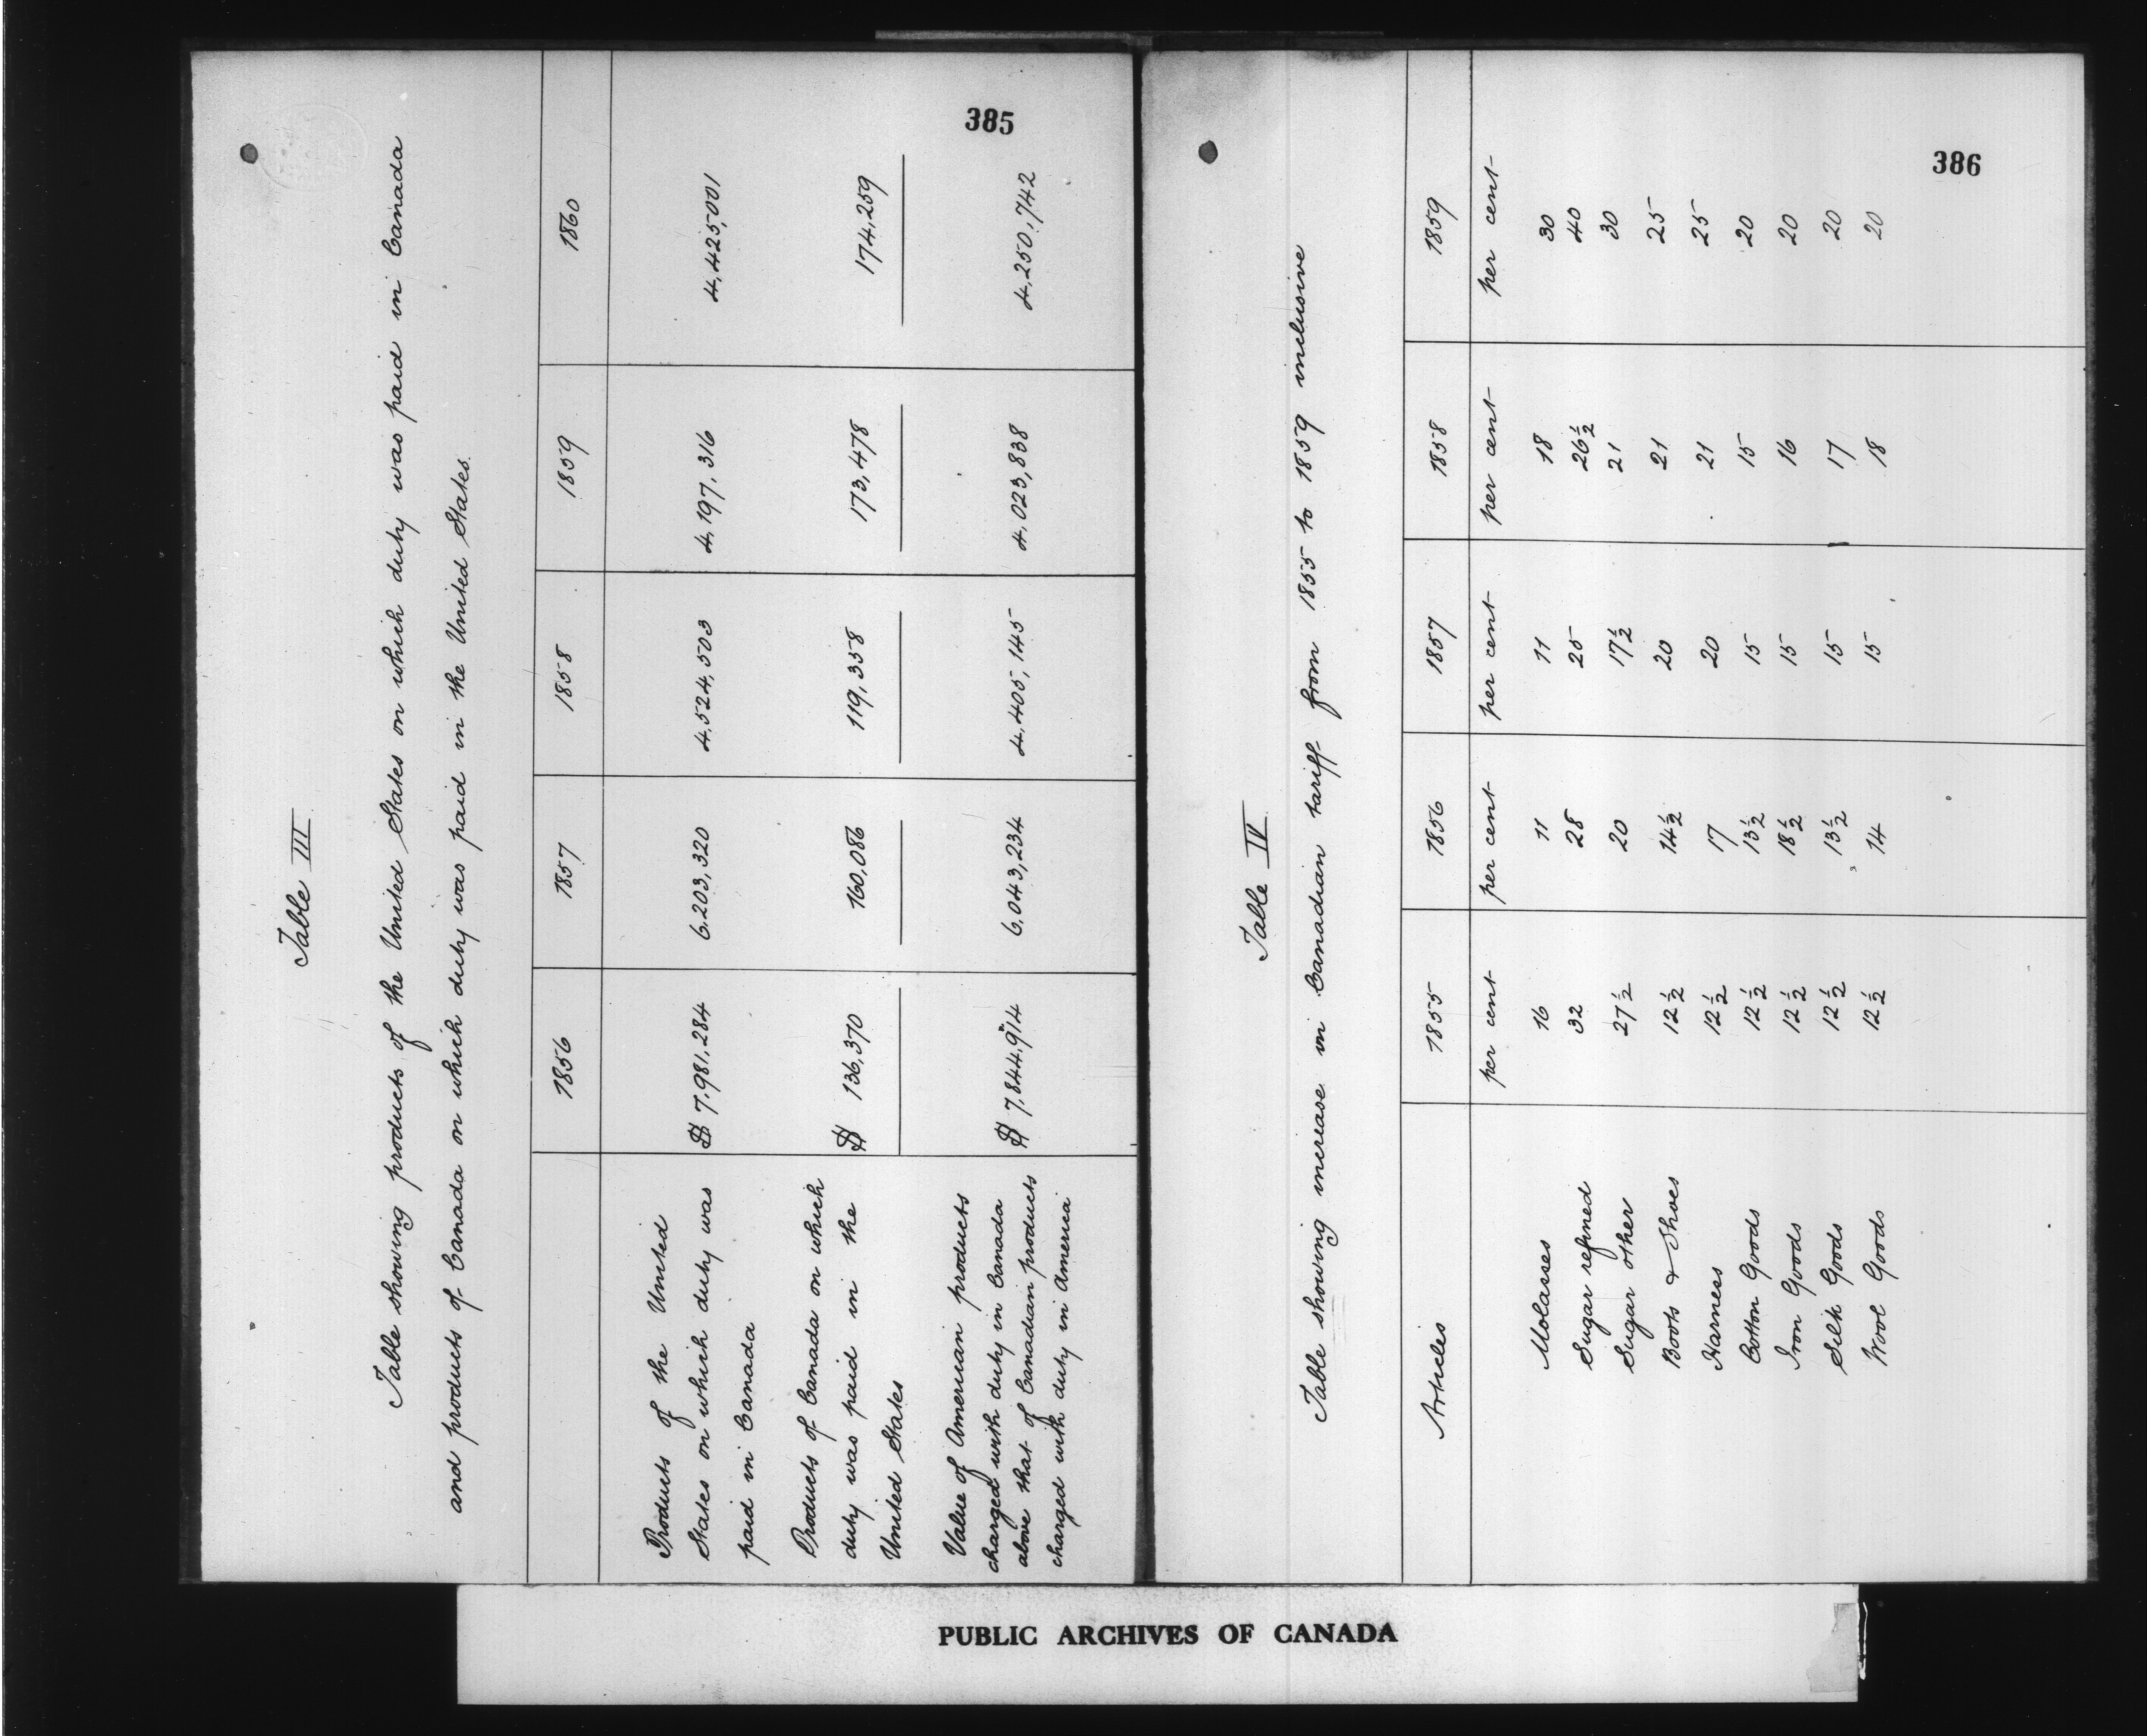 Table III
Table showing products of the United States on which duty was paid in Canada
and products of Canada on which duty was paid in the United States.
1856 1857 1858 1859 1860
Products of the United
States on which duty was $ 7,981,284 6,203,320 4,524,503 4,197,316 4,425,001
paid in Canada
Products of Canada on which
duty was paid in the $ 136,370 160,086 119,358 173,478 174,259
United States
Value of American products
charged with duty in Canada
above that of Canadian products $ 7,844,914 6,043,234 4,405,145 4,023,838 4,250,742
charged with duty in America
385
Table IV
Table showing increase in Canadian tariff from 1855 to 1859 inclusive
Articles 1855 1856 1857 1858 1859
per cent per cent per cent per cent per cent
Molasses 16 11 11 18 30
Sugar refined 32 28 25 26½ 40
Sugar other 27½ 20 17½ 21 30
Boots & Shoes 12½ 14½ 20 21 25
Harness 12½ 17 20 21 25
Cotton Goods 12½ 13½ 15 15 20
Iron Goods 12½ 18½ 15 16 20
Silk Goods 12½ 13½ 15 17 20
Wool Goods 12½ 14 15 18 20
386
PUBLIC ARCHIVES OF CANADA